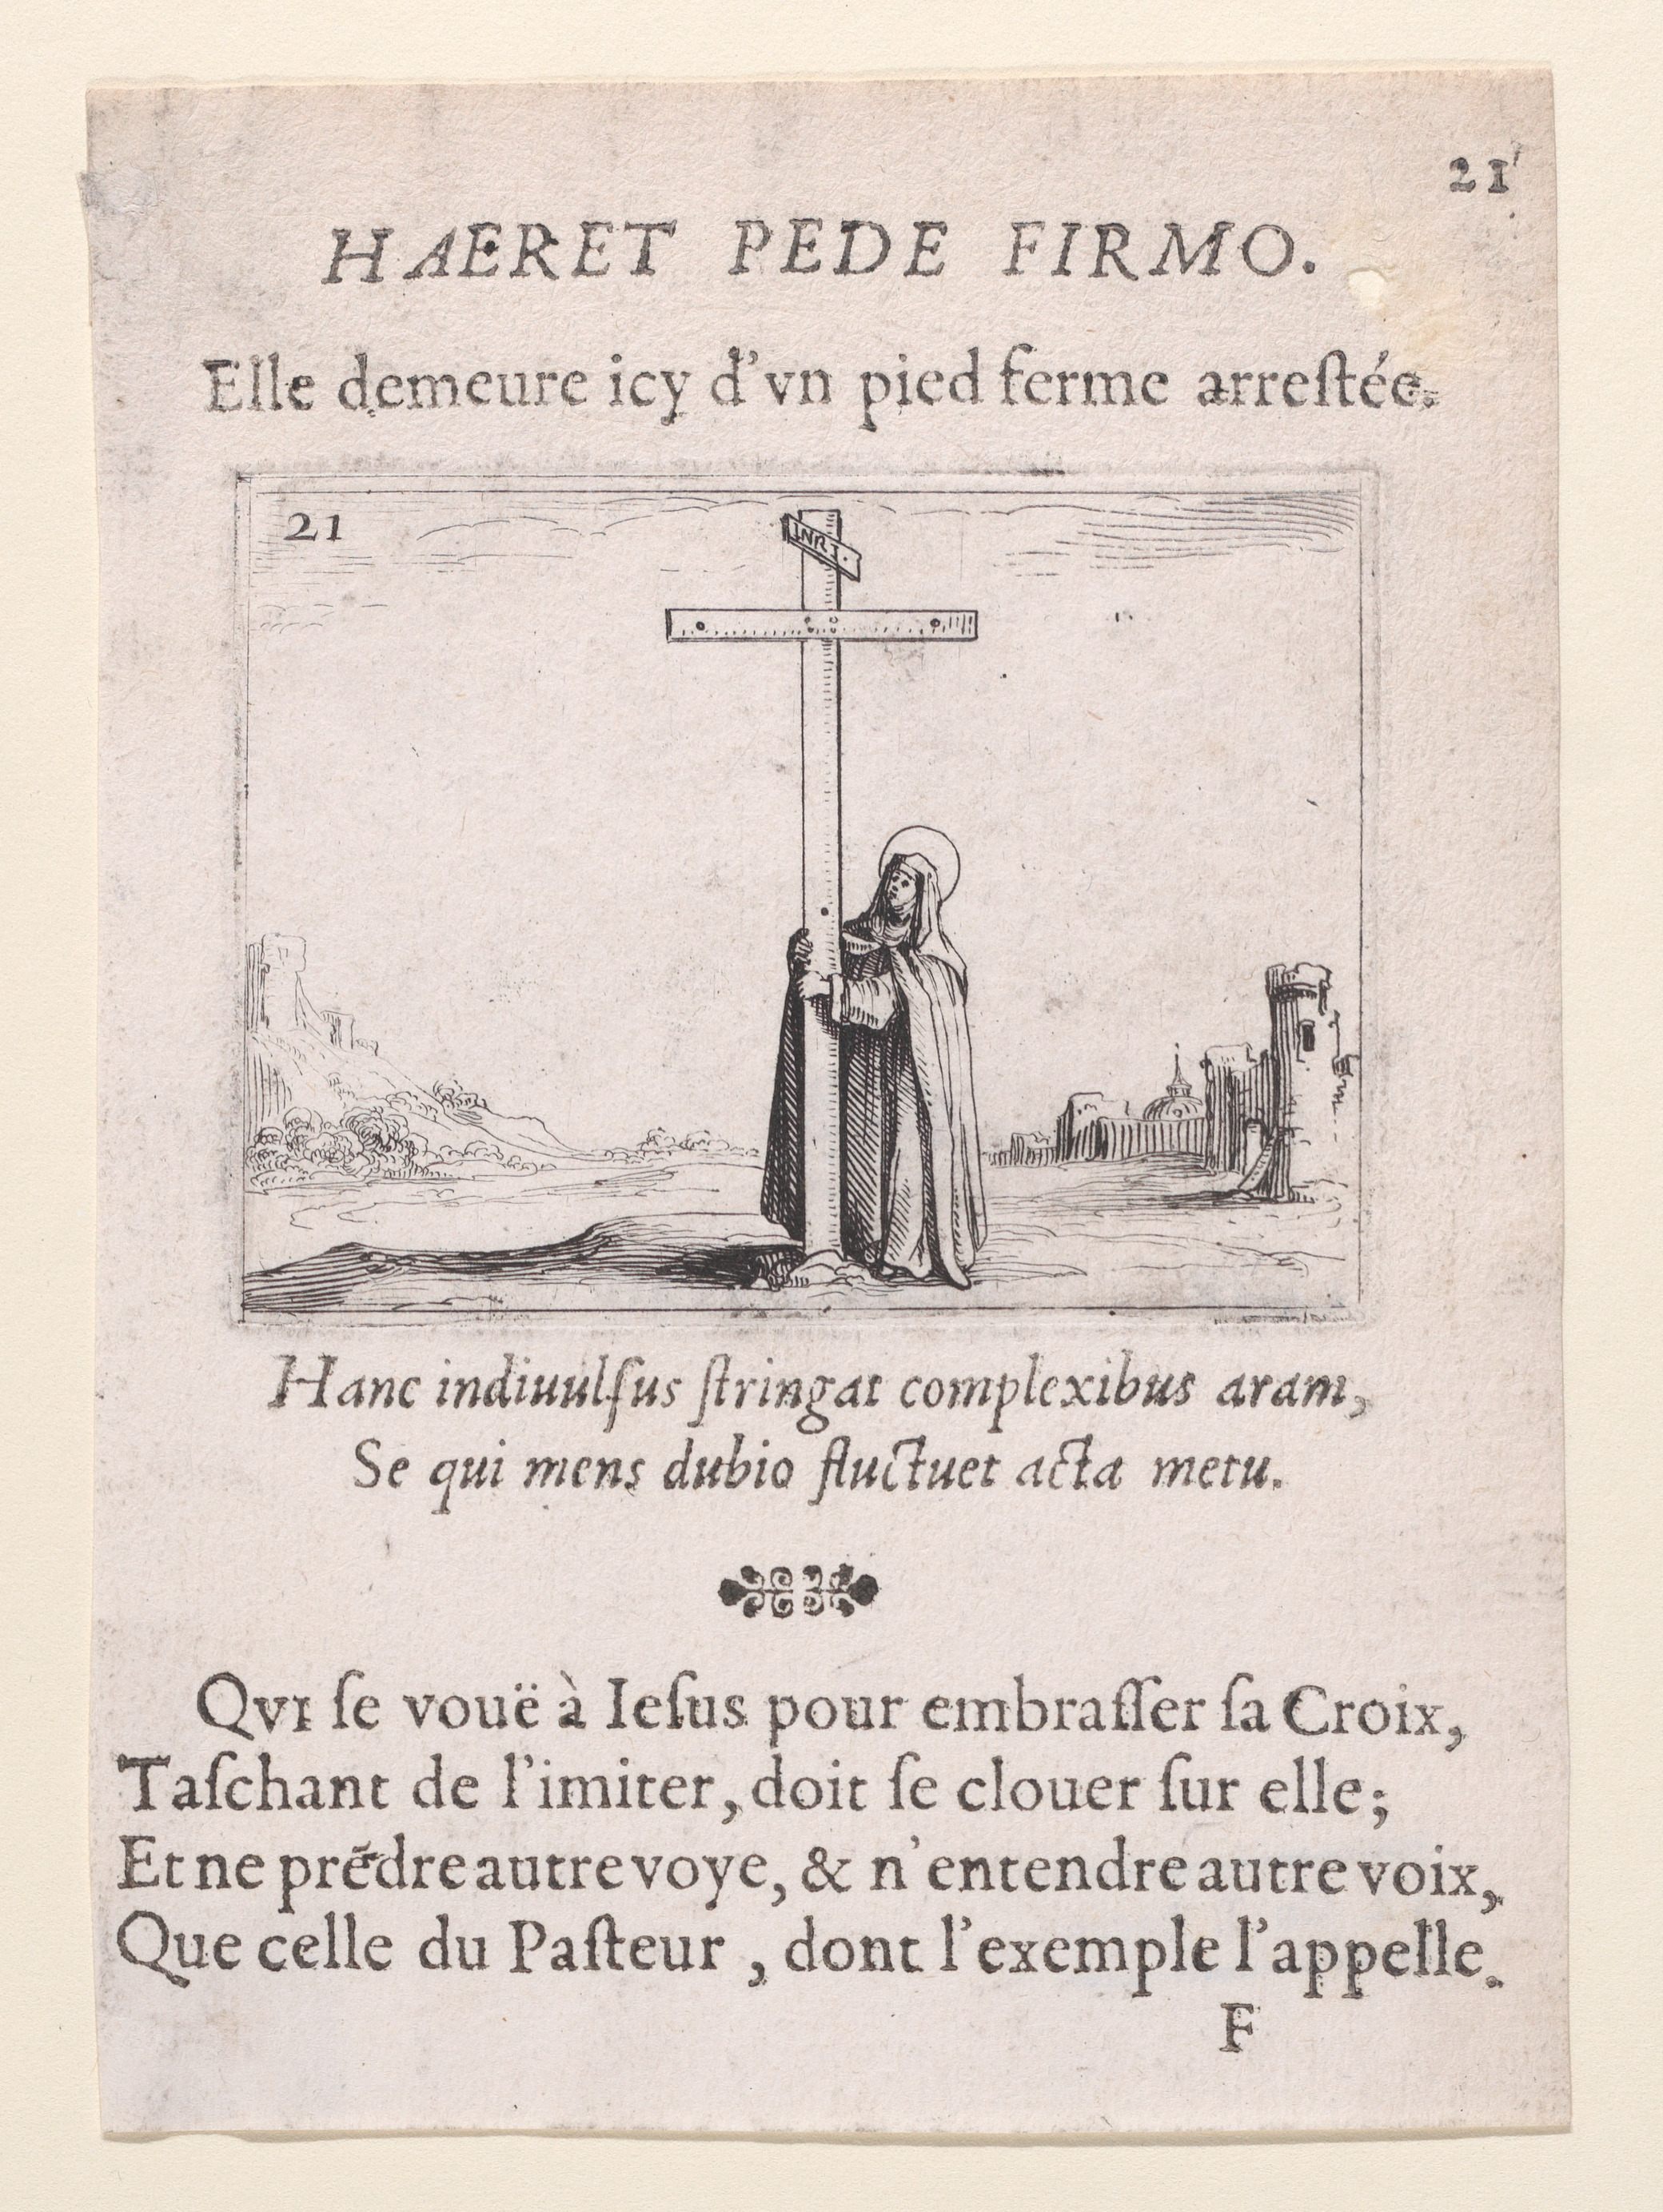 21
HAERET PEDE FIRMO.
Elle demeure icy d'vn pied ferme arreſtée.
21
INRI.
Hanc indiuulſus ſtringat complexibus aram,
Se qui mens dubio fluctuet acta metu.
Qvi ſe vouë à Ieſus pour embraſſer ſa Croix,
Taſchant de l'imiter, doit ſe clouer ſur elle;
Et ne prẽdre autre voye, & n'entendre autre voix,
Que celle du Paſteur, dont l'exemple l'appelle.
F